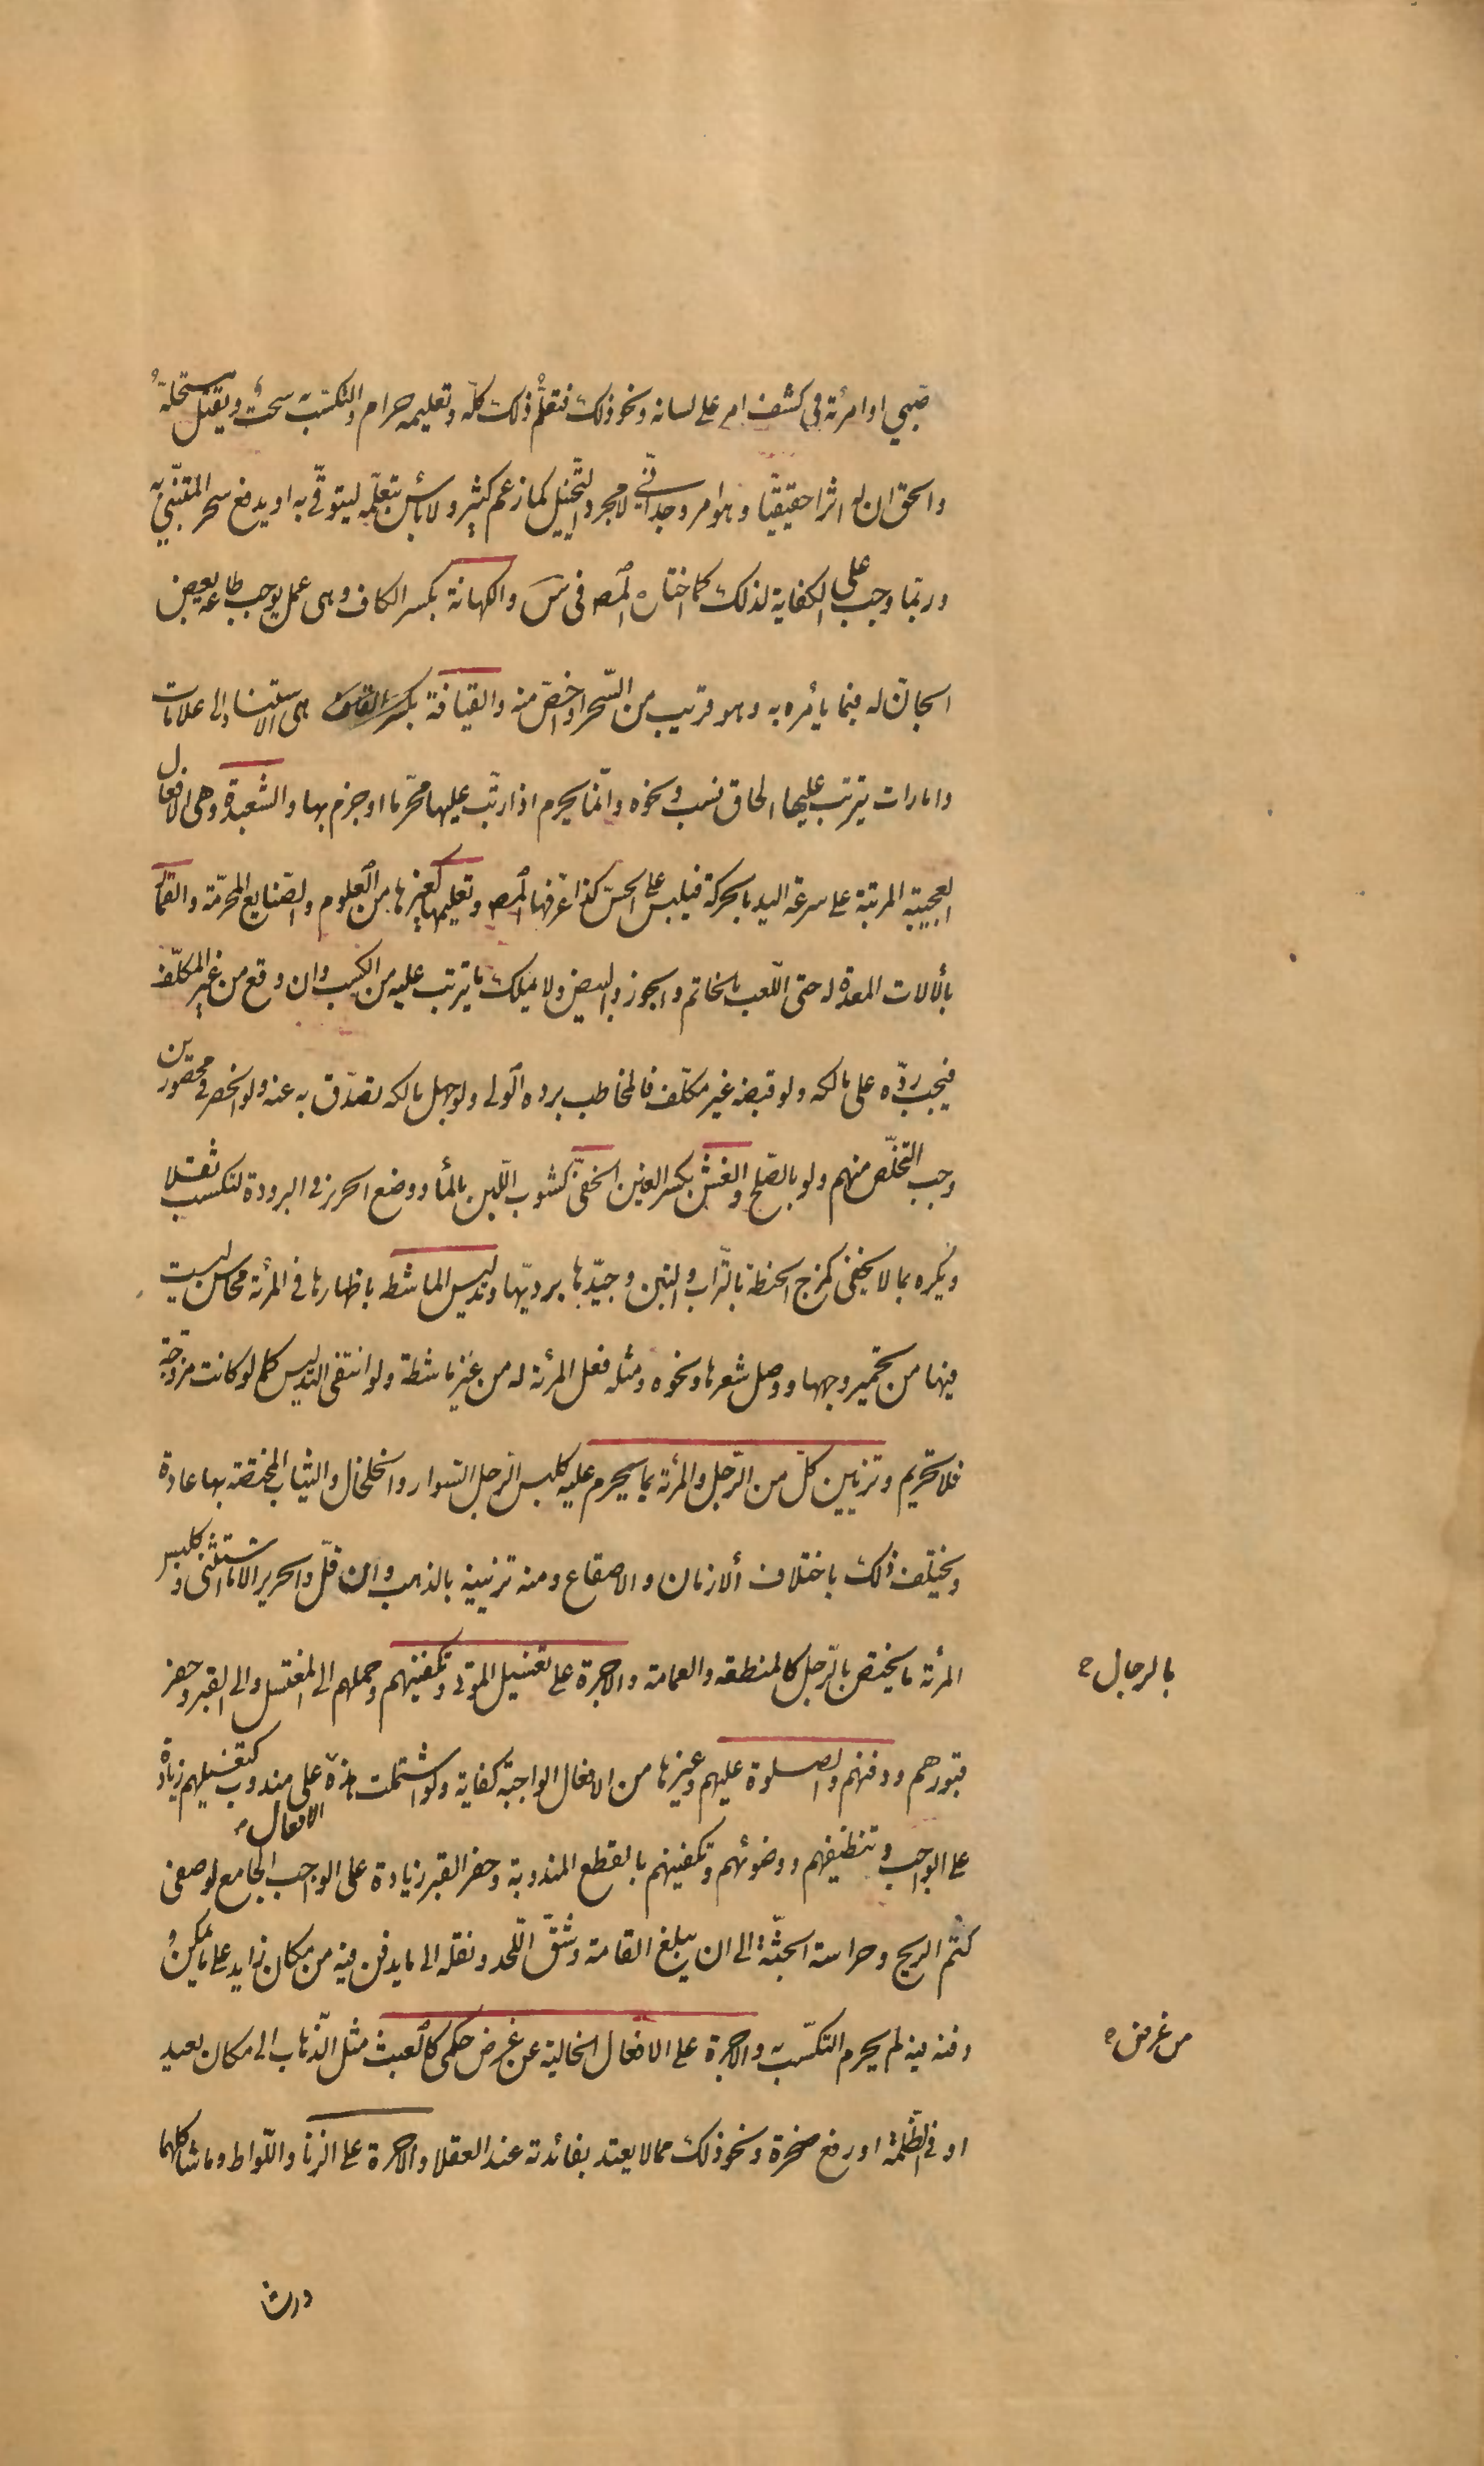 صبي او امرئة في كشف امر على لسانه ونحو ذلك فتعلم ذلك كلّه وتعليمه حرام والتكسّب به سحت ويقتل مستحلّه
والحق ان له اثرا حقيقيّا وهو امر وجدانيّ لا مجرد التّخييل كما زعم كثير ولا بأس بتعلّمه ليتوقّى به او يدفع سحر المتنبّي به
وربّما وجب على الكفاية لذلك كما اختاره المص فى س والكهانة بكسر الكاف وهى عمل يوجب طاعة بعض
الجانّ له فيما يأمره به وهو قريب من السّحر او اخصّ منه والقيافة هى الاستناد الى علامات
وامارات يترتب عليها الحاق نسب ونحوه وانّما يحرم اذا رتّب عليها محرّما او جزم بها والشعبدة وهى الافعال
العجيبة المرتبة على سرعة اليد بالحركة فيلبس على الحسّ كذا عرّفها المص وتعليمها كغيرها من العلوم والصّنايع المحرّمة والقمار
بألالات المعدة له حتى اللّعب بالخاتم والجوز والبيض ولا يملك ما يترتب عليه من الكسب وان وقع من غير المكلّف
فيجب ردّه على مالكه ولو قبضه غير مكلّف فالمخاطب برده الولى ولو جهل مالكه تصدّق به عنه ولو انحصر في محصورين
وجب التخلّص منهم ولو بالصّلح والغشّ بكسر الغين الخفىّ كشوب اللّبن بالمأ ووضع الحرير في البرودة لتكسب ثقلا
ويكره بما لا يخفى كمزج الحنطة بالتّراب والتبن وجيّدها برديّها وتدليس الماشطة باظهارها فى المرئة محاسن ليست
فيها من تحمير وجهها ووصل شعرها ونحوه ومثله فعل المرئة له من غير ماشطة ولو انتفى التدليس كما لو كانت مزوّجة
فلا تحريم وتزيين كلّ من الرّجل والمرئة بما يحرم عليه كلبس الرّجل السّوار والخلخال والثياب المختصّة بها عادة
ويختلف ذلك باختلاف ألازمان والاصقاع ومنه تزيينه بالذهب وان قلّ والحرير الا ما استثنى وكلبس
المرئة ما يختص بالرّجل كالمنطقة والعمامة والاجرة على تغسيل الموتى وتكفينهم وحملهم الى المغتسل والى القبر وحفر
بالرجال
قبورهم ودفنهم والصلوة عليهم وغيرها من الافعال الواجبة كفاية ولو اشتملت هذه على مندوب كتغسيلهم زيادة
الافعال
على الواجب وتنظيفهم ووضوئهم وتكفينهم بالقطع المندوبة وحفر القبر زيادة على الواجب الجامع لوصفى
كتم الريح وحراسة الجثّة الى ان يبلغ القامة وشقّ اللّحد ونقله الى ما يدفن فيه من مكان زايد على ما يمكن
دفنه فيه لم يحرم التكسّب به والاجرة على الافعال الخالية عن غرض حكمى كالعبث مثل الذّهاب الى مكان بعيد
من غرض
او فى الظّلمة او رفع صخرة ونحو ذلك مما لا يعتد بفائدته عند العقلا والاجرة على الزنا واللّواط وما شاكلهما